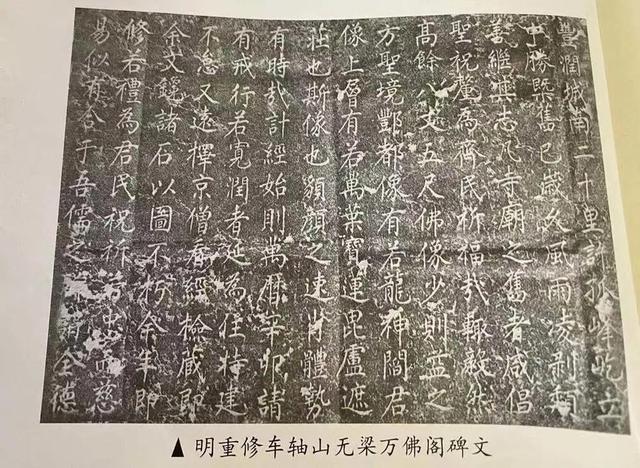 豐潤城南二十里許孤峰屹立
勝槩舊已歲久風雨凌剝頹
善繼志凡寺廟之舊者咸倡
聖祝釐為齊民祈福哉輙毅然
高餘八丈五尺佛像少則益之
方聖境酆都像有若龍神閻君
像上層有若萬葉寶蓮毘盧遮
莊也斯像也貌顏之逮肖體勢
有時哉計經始則萬曆辛卯諸
有戒行若寬潤者延為住持建
不怠又遠擇京僧看經檢藏即
余文鐫諸石以圖不朽余即
修若禮為君民祝祈忠而慈
易似有合于吾儒之全德
▲ 明重修车轴山无梁万佛阁碑文